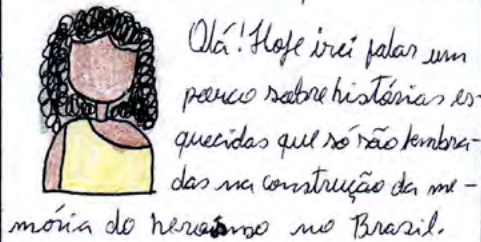 Olá! Hoje irei falar um
pouco sobre histórias es-
quecidas que só são lembra-
das na construção da me-
mória do heroísmo no Brasil.